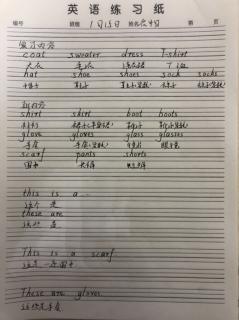 英语练习纸
编号 班级 1月15日 姓名 页
复习内容
coat sweater dress T-shirt
大衣 毛衣 连衣裙 T恤
hat shoe shoes sock socks
帽子 鞋子 鞋子(复数) 袜子 袜子(复数)
新内容
shirt skirt boot boots
衬衫 裙子(半身裙) 靴子 靴子(复数)
glove gloves glass glasses
手套 手套(复数) 眼镜
scarf pants shorts
围巾 短裤
this is a
这个是
these are
这些是
This is a scarf.
这是一条围巾
These are gloves.
这些是手套